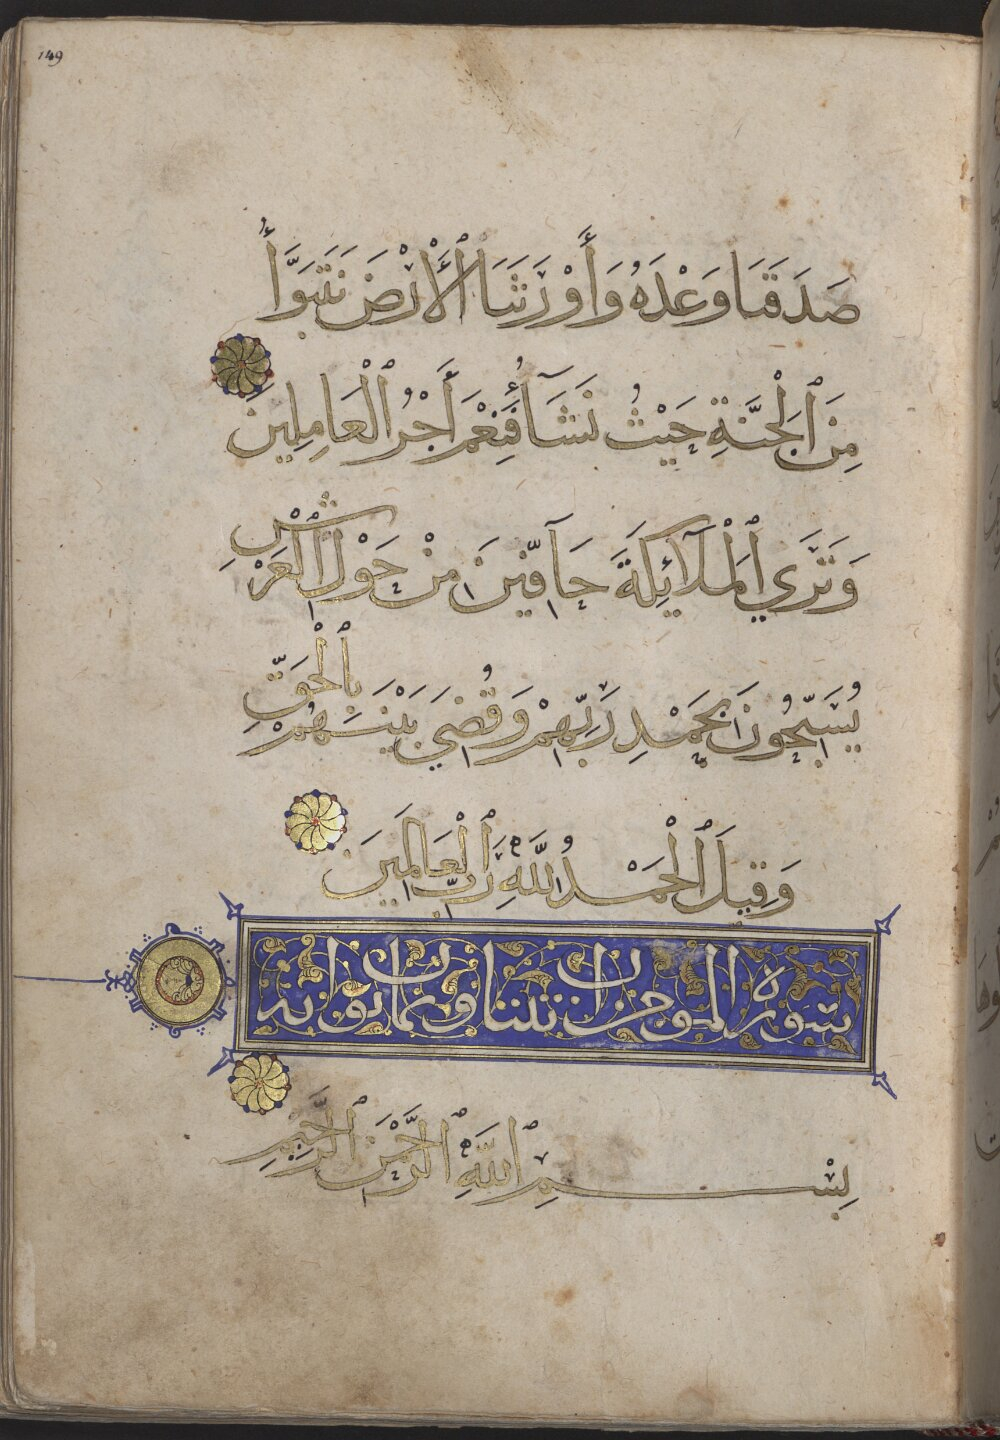 149
صَدَقَنَا وَعْدَهُ وَأَوْرَثَنَا ٱلْأَرْضَ نَتَبَوَّأُ
مِنَ ٱلْجَنَّةِ حَيْثُ نَشَآءُ فَنِعْمَ أَجْرُ ٱلْعَامِلِينَ
وَتَرَي ٱلْمَلَآئِكَةَ حَآفِّينَ مِنْ حَوْلِ ٱلْعَرْشِ
يُسَبِّحُونَ بِحَمْدِ رَبِّهِمْ وَقُضِيَ بَيْنَهُمْ بِٱلْحَقِّ
وَقِيلَ ٱلْحَمْدُ لِلَّهِ رَبِّ ٱلْعَالَمِينَ
سورة المؤمن ثمانون آية
بِسْمِ ٱللَّهِ ٱلرَّحْمَنِ ٱلرَّحِيمِ